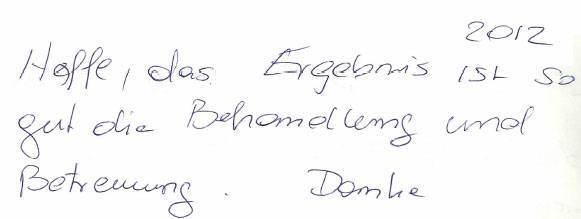 2012
Hoffe, das Ergebnis ist so
gut die Behandlung und
Betreuung. Danke